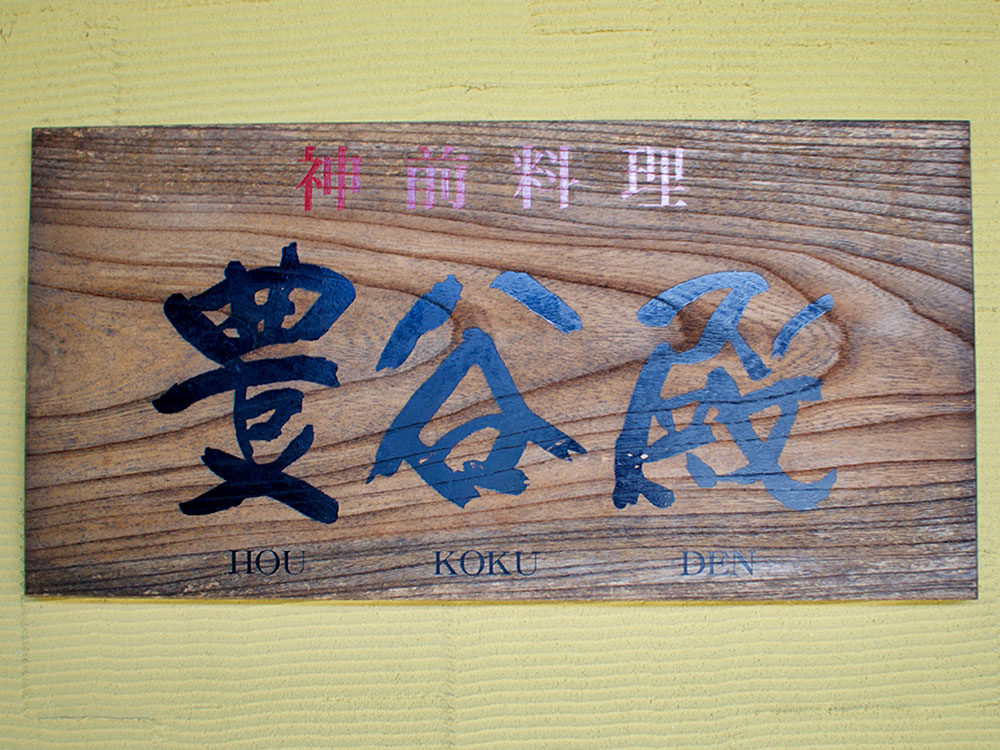 神前料理
豊谷殿
HOU KOKU DEN